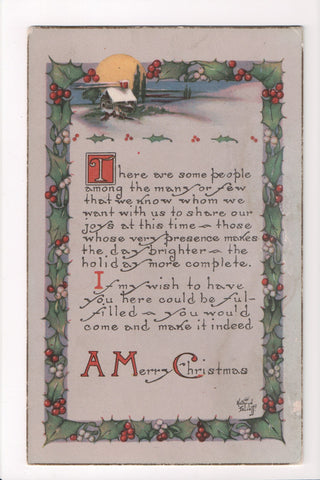 There are some people
among the many or few
that we know whom we
want with us to share our
joys at this time — those
whose very presence makes
the day brighter — the
holiday more complete.
If my wish to have
you here could be ful-
filled — you would
come and make it indeed
A Merry Christmas